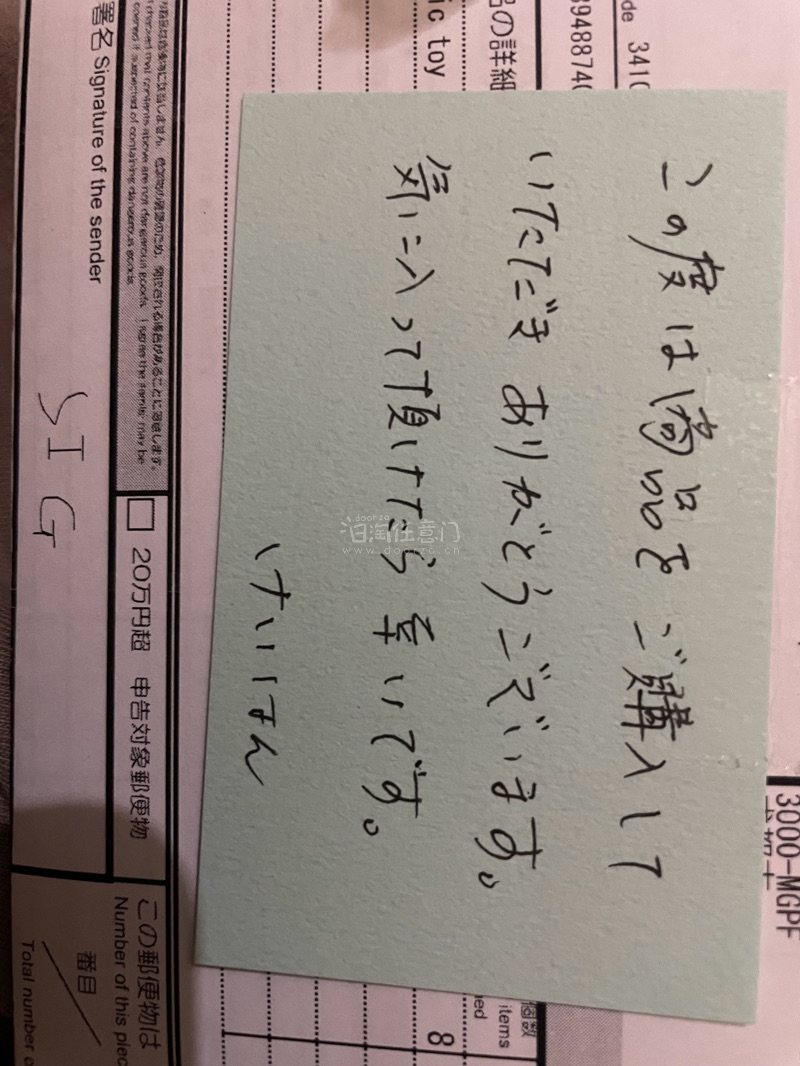 この度は商品をご購入して
いただきありがとうございます。
気に入って頂けたら幸いです。
けいはん
de 3410
3948874
品の詳細
ic toy
8
個数
items
ned
3000-MGPF
署名 Signature of the sender
SIG
20万円超 申告対象郵便物
この郵便物は
Number of this piec
番目
Total number o
doorzo
日淘任意门
www.doorzo.cn